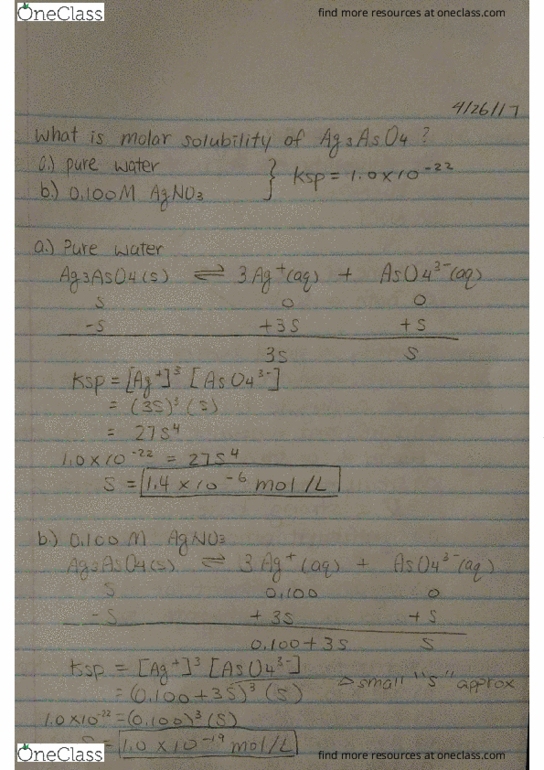 OneClass
find more resources at oneclass.com
4/26/17
What is molar solubility of Ag3AsO4?
a.) pure water
b.) 0.100M AgNO3
} Ksp = 1.0 x 10^-22
a.) Pure water
Ag3AsO4(s) ⇌ 3Ag+(aq) + AsO4^3-(aq)
S 0 0
-S +3S +S
3S S
Ksp = [Ag+]^3 [AsO4^3-]
= (3S)^3 (S)
= 27S^4
1.0 x 10^-22 = 27S^4
S = 1.4 x 10^-6 mol/L
b.) 0.100 M AgNO3
Ag3AsO4(s) ⇌ 3Ag+(aq) + AsO4^3-(aq)
S 0.100 0
-S + 3S + S
0.100+3S S
Ksp = [Ag+]^3 [AsO4^3-]
= (0.100+3S)^3 (S) ⇒ small "s" approx
1.0 x 10^-22 = (0.100)^3 (S)
S = 1.0 x 10^-19 mol/L
OneClass
find more resources at oneclass.com